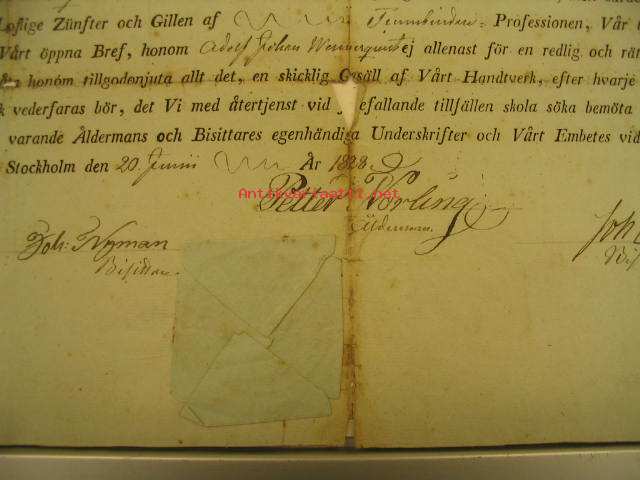 Löflige Zünfter och Gillen af Tunnbindare- Professionen, Vår
Vårt öppna Bref, honom Adolf Johan Wennerqvist ej allenast för en redlig och rätt
honom tillgodonjuta allt det, en skicklig Gesäll af Vårt Handtverk, efter hvarje
k vederfaras bör, det Vi med återtjenst vid förefallande tillfällen skola söka bemöta
varande Åldermans och Bisittares egenhändiga Underskrifter och Vårt Embetes vid
Stockholm den 20 Junii År 1828.
Antikvariaatti.net
Petter Norling
Ålderman.
Joh: Nyman
Bisittare.
Joh
Bis